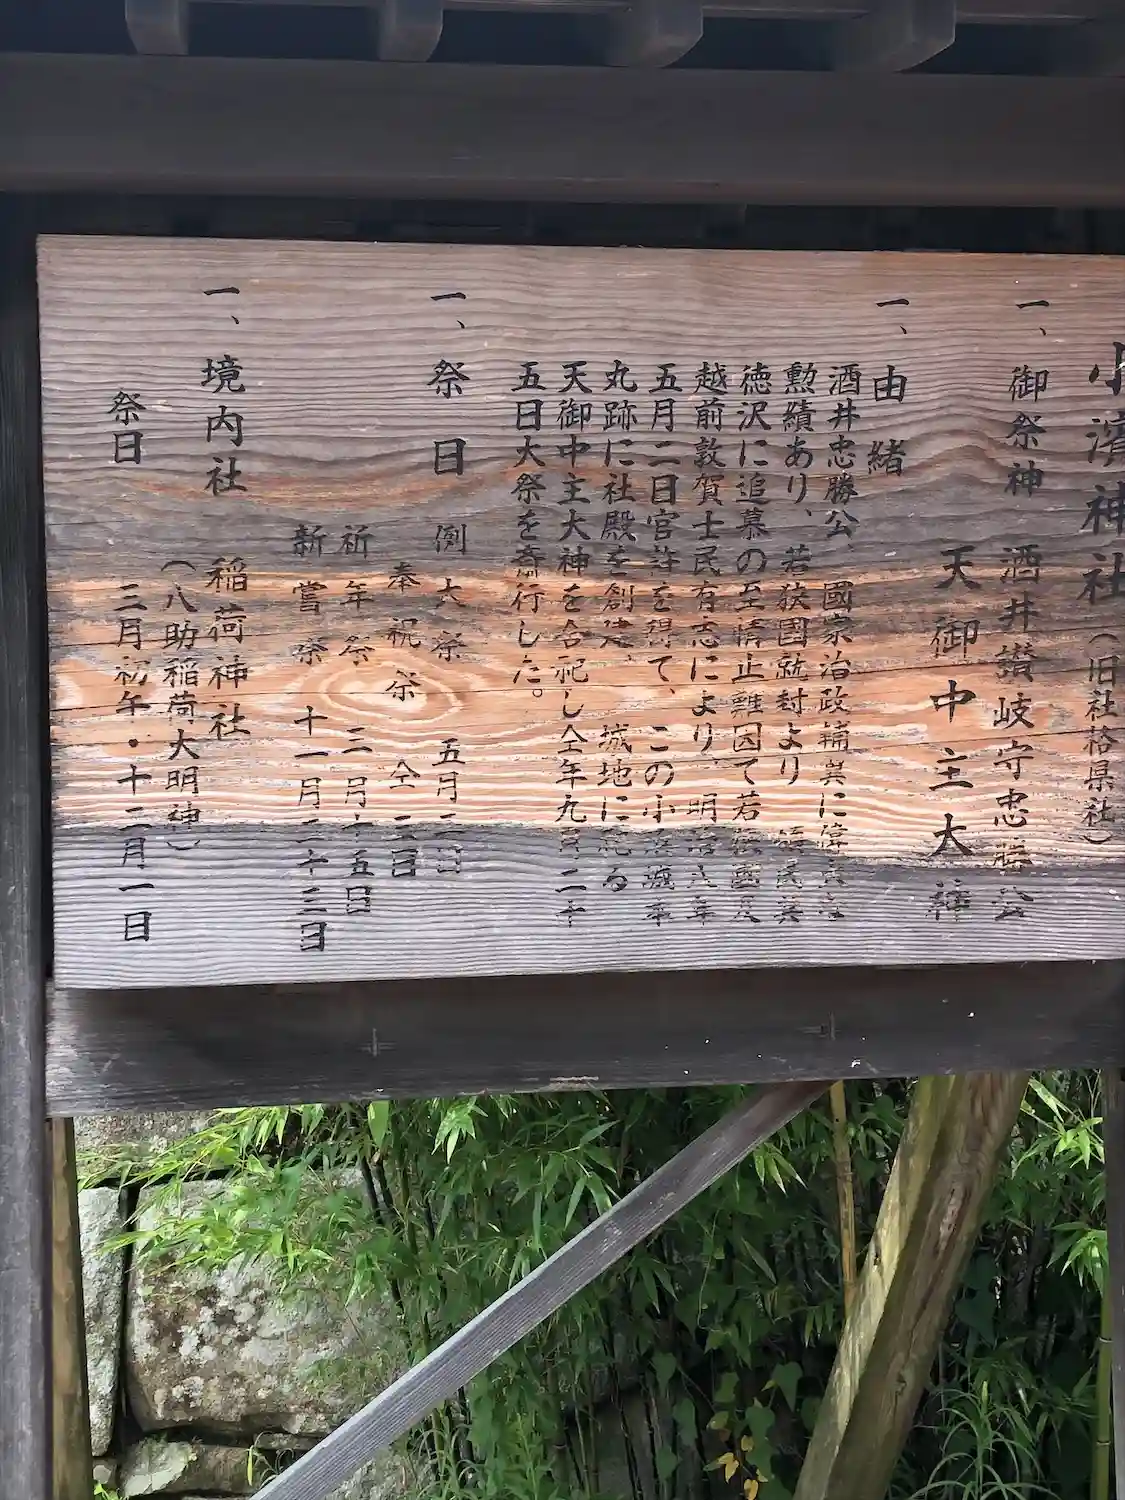 小濱神社（旧社格県社）
一、御祭神 酒井讃岐守忠勝公
天御中主大神
一、由緒
酒井忠勝公、國家治政輔翼に偉大な
勲績あり、若狭國就封より 民其
徳沢に追慕の至情止難因て若狭國及
越前敦賀士民有志により、明治八年
五月二日官許を得て、この小濱城本
丸跡に社殿を創建、城地に
天御中主大神を合祀し仝年九月二十
五日大祭を斎行した。
一、祭日 例大祭 五月二日
奉祝祭 仝 三日
祈年祭 三月十五日
新嘗祭 十一月二十三日
一、境内社 稲荷神社
（八助稲荷大明神）
祭日 三月初午・十二月一日